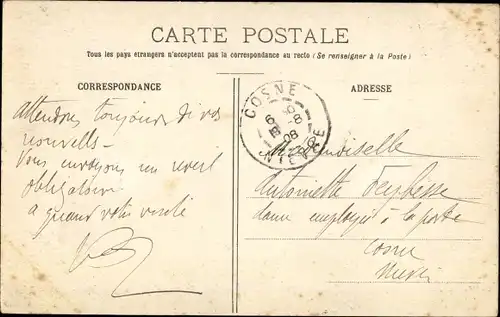 CARTE POSTALE
Tous les pays étrangers n'acceptent pas la correspondance au recto (Se renseigner à la Poste)
CORRESPONDANCE
ADRESSE
COSNE
NIEVRE
attendons toujours de vos
nouvelles -
Vous envoyons un
obligatoire
a quand votre
Mademoiselle
Antoinette
employée à la poste
Cosne
Nièvre